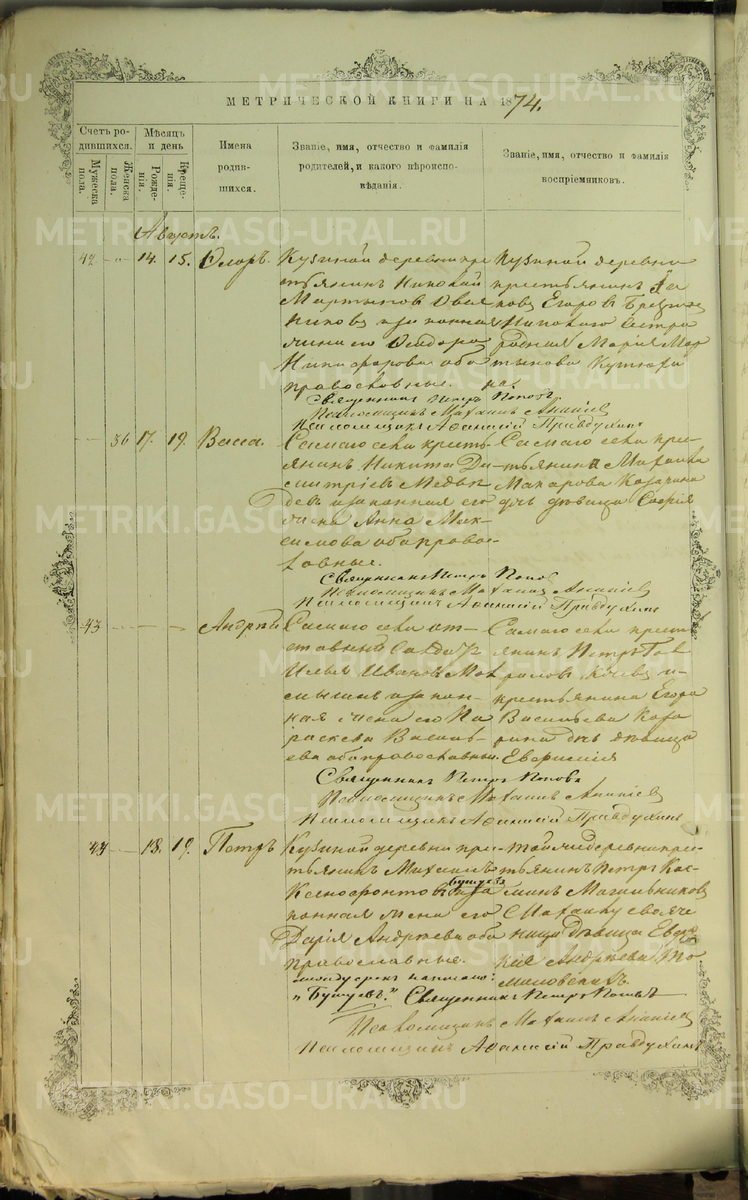 МЕТРИЧЕСКОЙ КНИГИ НА 1874.
Счетъ ро-
дившихся.
Мужеска
пола.
Женска
пола.
Мѣсяцъ
и день
Рожде-
нія.
Креще-
нія.
Имена
родив-
шихся.
Званіе, имя, отчество и фамилія
родителей, и какого вѣроиспо-
вѣданія.
Званіе, имя, отчество и фамилія
воспріемниковъ.
Августъ.
42 14. 15. Флоръ.
Кузиной деревни кре
стьянинъ Николай
Мартыновъ
и законная
жена его Феодора
Никифорова оба
православные.
Кузиной деревни
крестьянинъ
Егоровъ
сестра
родная Марія Мар
тынова
Священникъ Петръ Поповъ
Псаломщикъ Михаилъ Ананіев
Псаломщикъ Афанасій Правдухинъ
36 17. 19. Васса.
Самаго села кресть-
янинъ Никита Ди-
митріевъ Медвѣ
девъ и законная его
жена Анна Мак-
симова оба право-
славные.
Самаго села кре-
стьянина Михаила
Макарова Казарина
дочь дѣвица Софія
Священникъ Петръ Поповъ
Псаломщикъ Михаилъ Ананіевъ
Псаломщикъ Афанасій Правдухинъ
43 Андрей
Самаго села от-
ставный Солдатъ
Илья Ивановъ
и закон-
ная жена его Па
раскева Василь-
ева оба православные.
Самаго села крест
янинъ Петръ Гав
риловъ
крестьянина Егора
Васильева Каза
рина дочь дѣвица
Евфимія
Священникъ Петръ Поповъ
Псаломщикъ Михаилъ Ананіевъ
Псаломщикъ Афанасій Правдухинъ
44 18. 19. Петръ
Кузиной деревни кре-
стьянинъ Михаилъ
Ксенофонтовъ Бушуевъ и за
конная жена его
Дарія Андреева оба
православные.
Той же деревни кре-
стьянинъ Петръ Кос-
минъ Магильников
и Михаилу своя че
ница дѣвица Евдо
кія Андреева То
миловскихъ.
между строкъ написано:
"Бушуевъ." Священникъ Петръ Поповъ
Псаломщикъ Михаилъ Ананіевъ
Псаломщикъ Афанасій Правдухинъ
METRIKI.GASO-URAL.RU